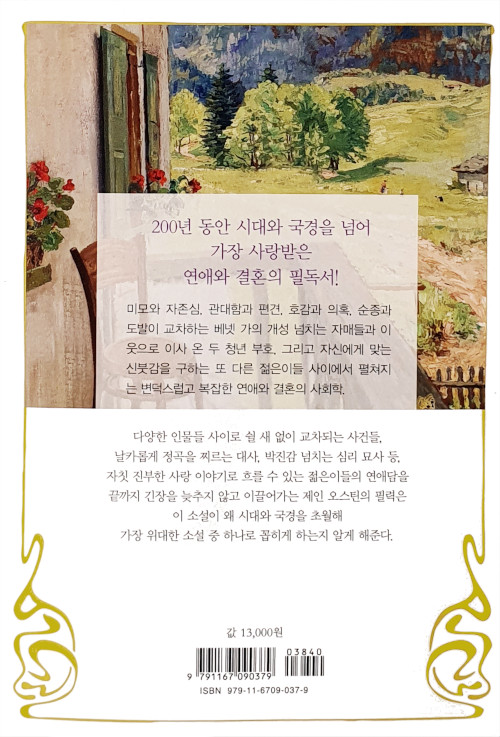 200년 동안 시대와 국경을 넘어
가장 사랑받은
연애와 결혼의 필독서!
미모와 자존심, 관대함과 편견, 호감과 의혹, 순종과
도발이 교차하는 베넷 가의 개성 넘치는 자매들과 이
웃으로 이사 온 두 청년 부호, 그리고 자신에게 맞는
신붓감을 구하는 또 다른 젊은이들 사이에서 펼쳐지
는 변덕스럽고 복잡한 연애와 결혼의 사회학.
다양한 인물들 사이로 쉴 새 없이 교차되는 사건들,
날카롭게 정곡을 찌르는 대사, 박진감 넘치는 심리 묘사 등,
자칫 진부한 사랑 이야기로 흐를 수 있는 젊은이들의 연애담을
끝까지 긴장을 늦추지 않고 이끌어가는 제인 오스틴의 필력은
이 소설이 왜 시대와 국경을 초월해
가장 위대한 소설 중 하나로 꼽히게 하는지 알게 해준다.
값 13,000원
03840
9 791167 090379
ISBN 979-11-6709-037-9